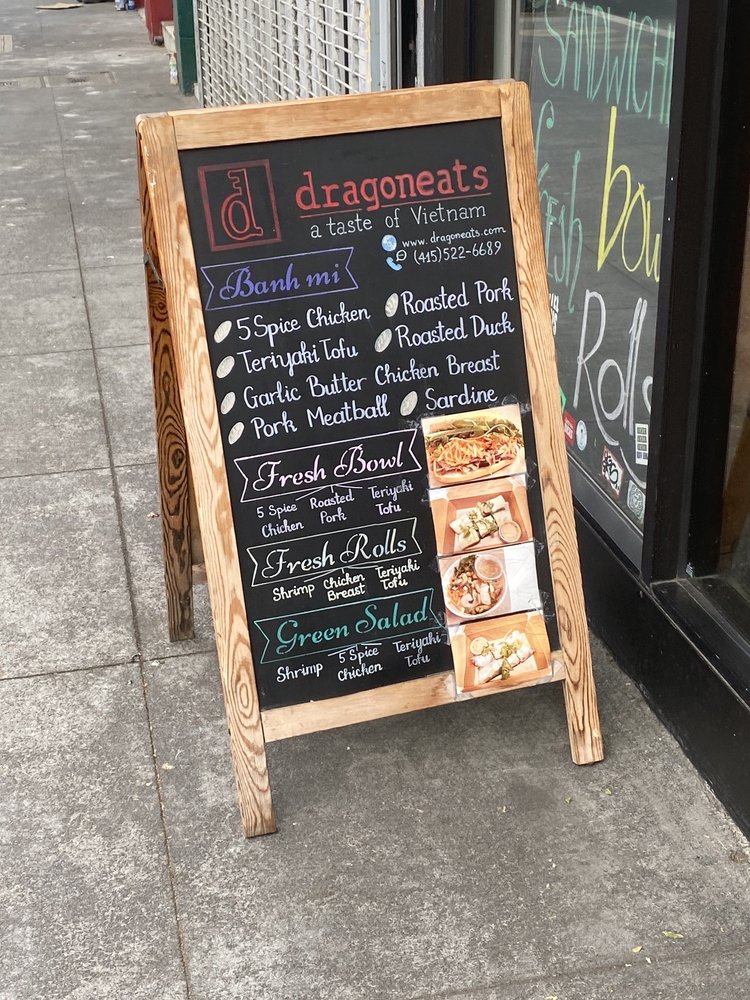 d
dragoneats
a taste of Vietnam
www.dragoneats.com
(415)522-6689
Banh mi
5 Spice Chicken
Roasted Pork
Teriyaki Tofu
Roasted Duck
Garlic Butter Chicken Breast
Pork Meatball
Sardine
Fresh Bowl
5 Spice Chicken
Roasted Pork
Teriyaki Tofu
Fresh Rolls
Shrimp
Chicken Breast
Teriyaki Tofu
Green Salad
Shrimp
5 Spice Chicken
Teriyaki Tofu
SANDWICH
fresh
bowl
Rolls